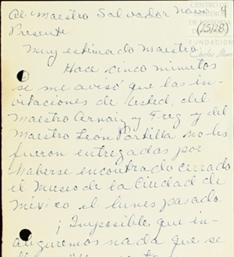 Al maestro Salvador Novo. 4
(25/28)
Presente
Muy estimado Maestro
Hace cinco minutos
se me avisó que las in-
vitaciones de Usted, del
Maestro Arnaiz y Freg y del
Maestro León Portilla no les
fueron entregadas por
haberse encontrado cerrado
el Museo de la Ciudad de
México el lunes pasado.
¡Imposible, que in-
auguremos nada que se